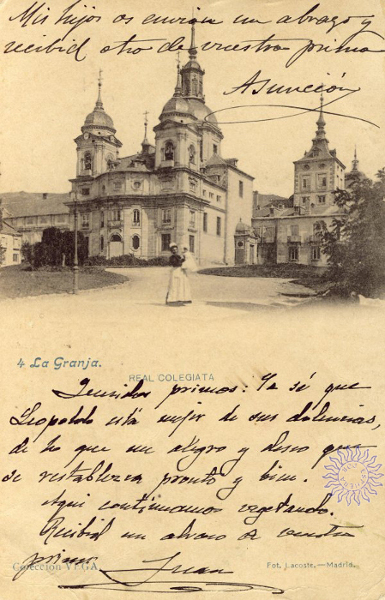 Mis hijos os envian un abrazo y
recibid otro de vuestra prima
Asunción
4 La Granja.
REAL COLEGIATA
Queridos primos: Ya sé que
Leopoldo está mejor de sus dolencias,
de lo que me alegro y deseo que
se restablezca pronto y bien.
Aqui continuamos vegetando.
Recibid un abrazo de vuestro
primo
Juan
Colección VEGA
Fot. J. Lacoste.—Madrid.